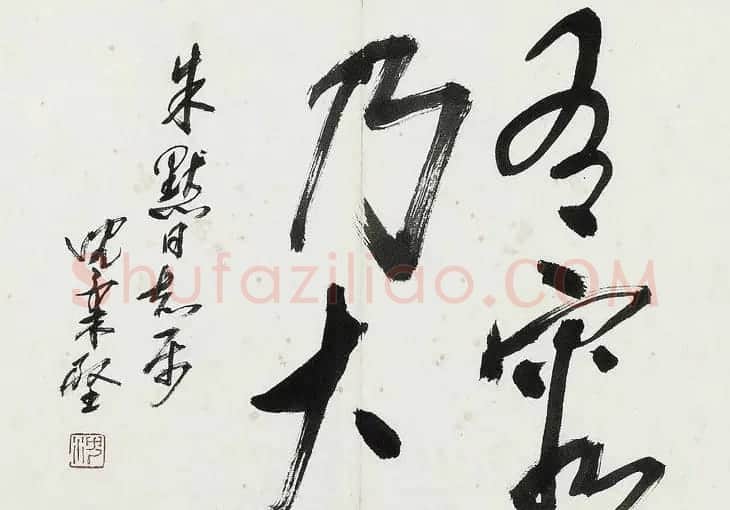 有容
乃大
朱默同志
沈柔坚
Shufaziliao.COM